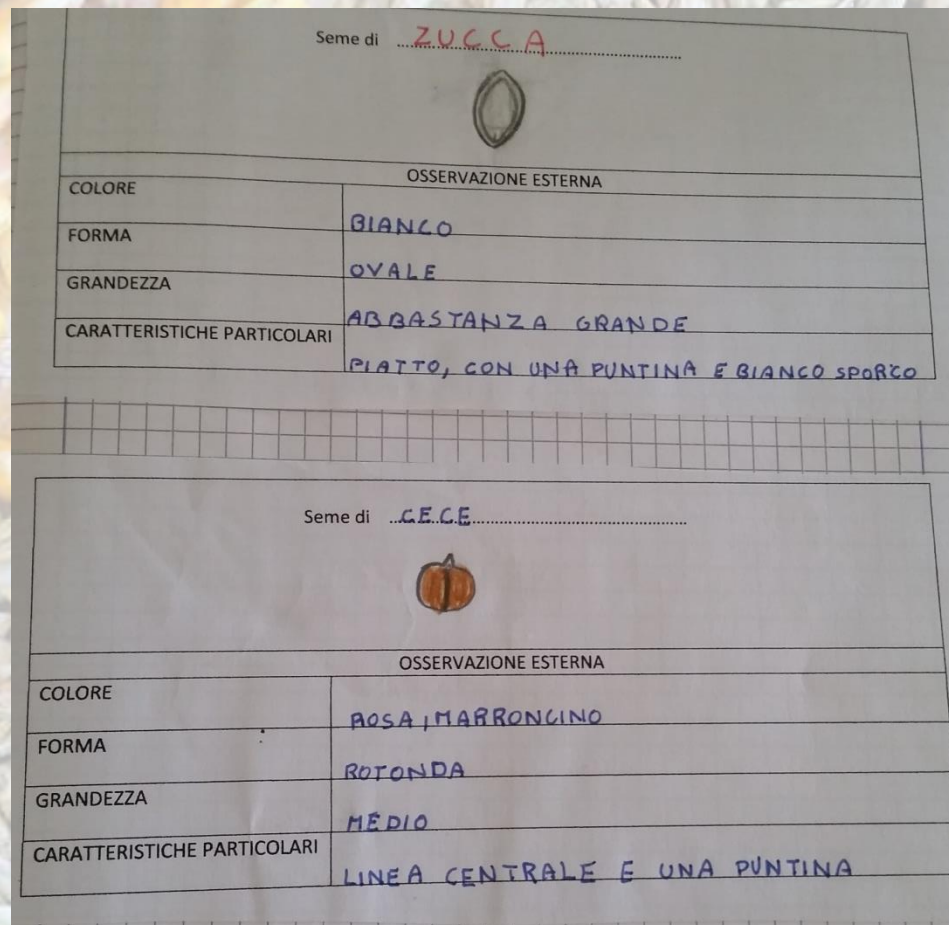 Seme di ZUCCA
OSSERVAZIONE ESTERNA
COLORE
BIANCO
FORMA
OVALE
GRANDEZZA
ABBASTANZA GRANDE
CARATTERISTICHE PARTICOLARI
PIATTO, CON UNA PUNTINA E BIANCO SPORCO
Seme di CECE
OSSERVAZIONE ESTERNA
COLORE
ROSA, MARRONCINO
FORMA
ROTONDA
GRANDEZZA
MEDIO
CARATTERISTICHE PARTICOLARI
LINEA CENTRALE E UNA PUNTINA